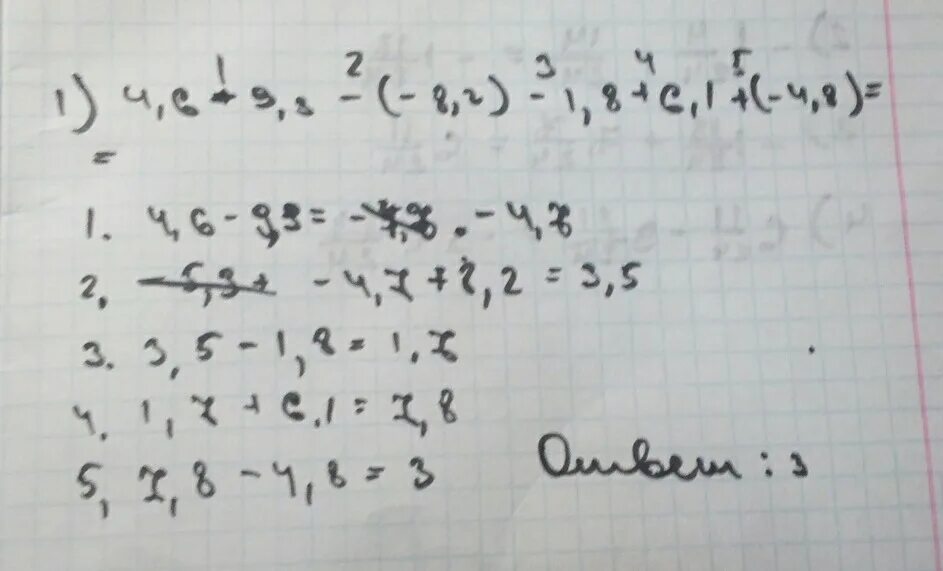 1 2 3 4 5
1) 4,6 - 9,3 - (- 8,2) - 1,8 + 6,1 + (- 4,8) =
=
1. 4,6 - 9,3 = - 4,7
2. - 4,7 + 8,2 = 3,5
3. 3,5 - 1,8 = 1,7
4. 1,7 + 6,1 = 7,8
5, 7,8 - 4,8 = 3
Ответ : 3